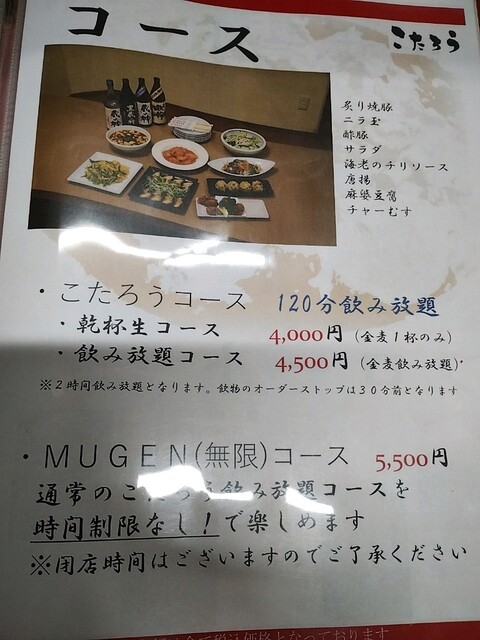 コース
こたろう
炙り焼豚
ニラ玉
酢豚
サラダ
海老のチリソース
唐揚
麻婆豆腐
チャーむす
・こたろうコース 120分飲み放題
・乾杯生コース 4,000円（金麦１杯のみ）
・飲み放題コース 4,500円（金麦飲み放題）
※２時間飲み放題となります。飲物のオーダーストップは３０分前となります
・ＭＵＧＥＮ(無限)コース 5,500円
通常のこたろう飲み放題コースを
時間制限なし！で楽しめます
※閉店時間はございますのでご了承ください
税込価格となっております